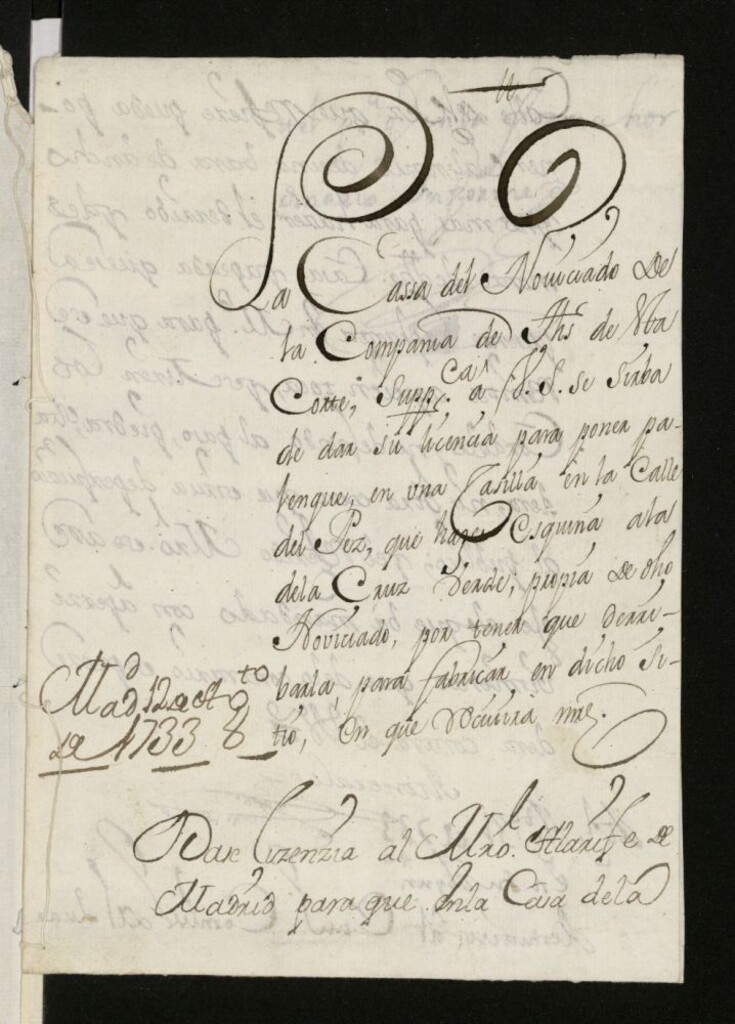 S S
La Cassa del Nouiciado De
la Compania de Jhs de Esta
Corte, Supp.ca a V.S. se sirba
de dar su licencia para poner pa-
lenque, en vna Casilla en la Calle
del Pez, que hace Esquina ala
dela Cruz Verde, propia de dho
Noviciado, por tener que derri-
barla, para fabricar en dicho si-
tio, En que Recivira mrd.
Mad.d 12 de Ag.to
de 1733
Dase lizenzia al Mro. Alarife de
Madrid para que Enla Casa dela